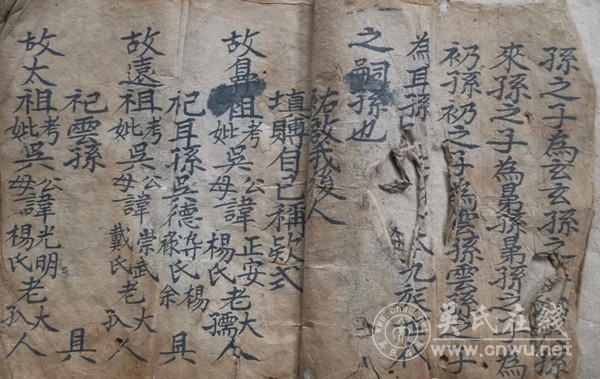 孫之子為玄玄孫之 孫
來孫之子為晜孫晜孫之子為
礽孫礽之子為雲孫雲孫之子
為耳孫 九族
之嗣孫也
祐啟我後人
填賻自己稱欵式
故鼻祖考妣吳公母諱正安楊氏老大孺人
祀耳孫吳德 祿氏楊余 具
故遠祖考妣吳公母諱崇武戴氏老大孤人
祀雲孫 具
故太祖考妣吳公母諱光明楊氏老大孤人
吳氏在线
www.cnwu.net